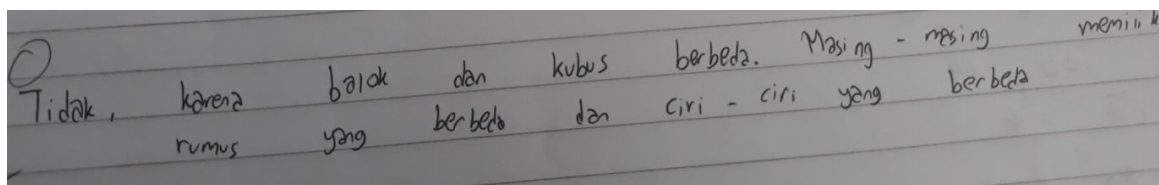 Tidak, karena balok dan kubus berbeda. Masing - masing memilik
rumus yang berbeda dan ciri - ciri yang berbeda